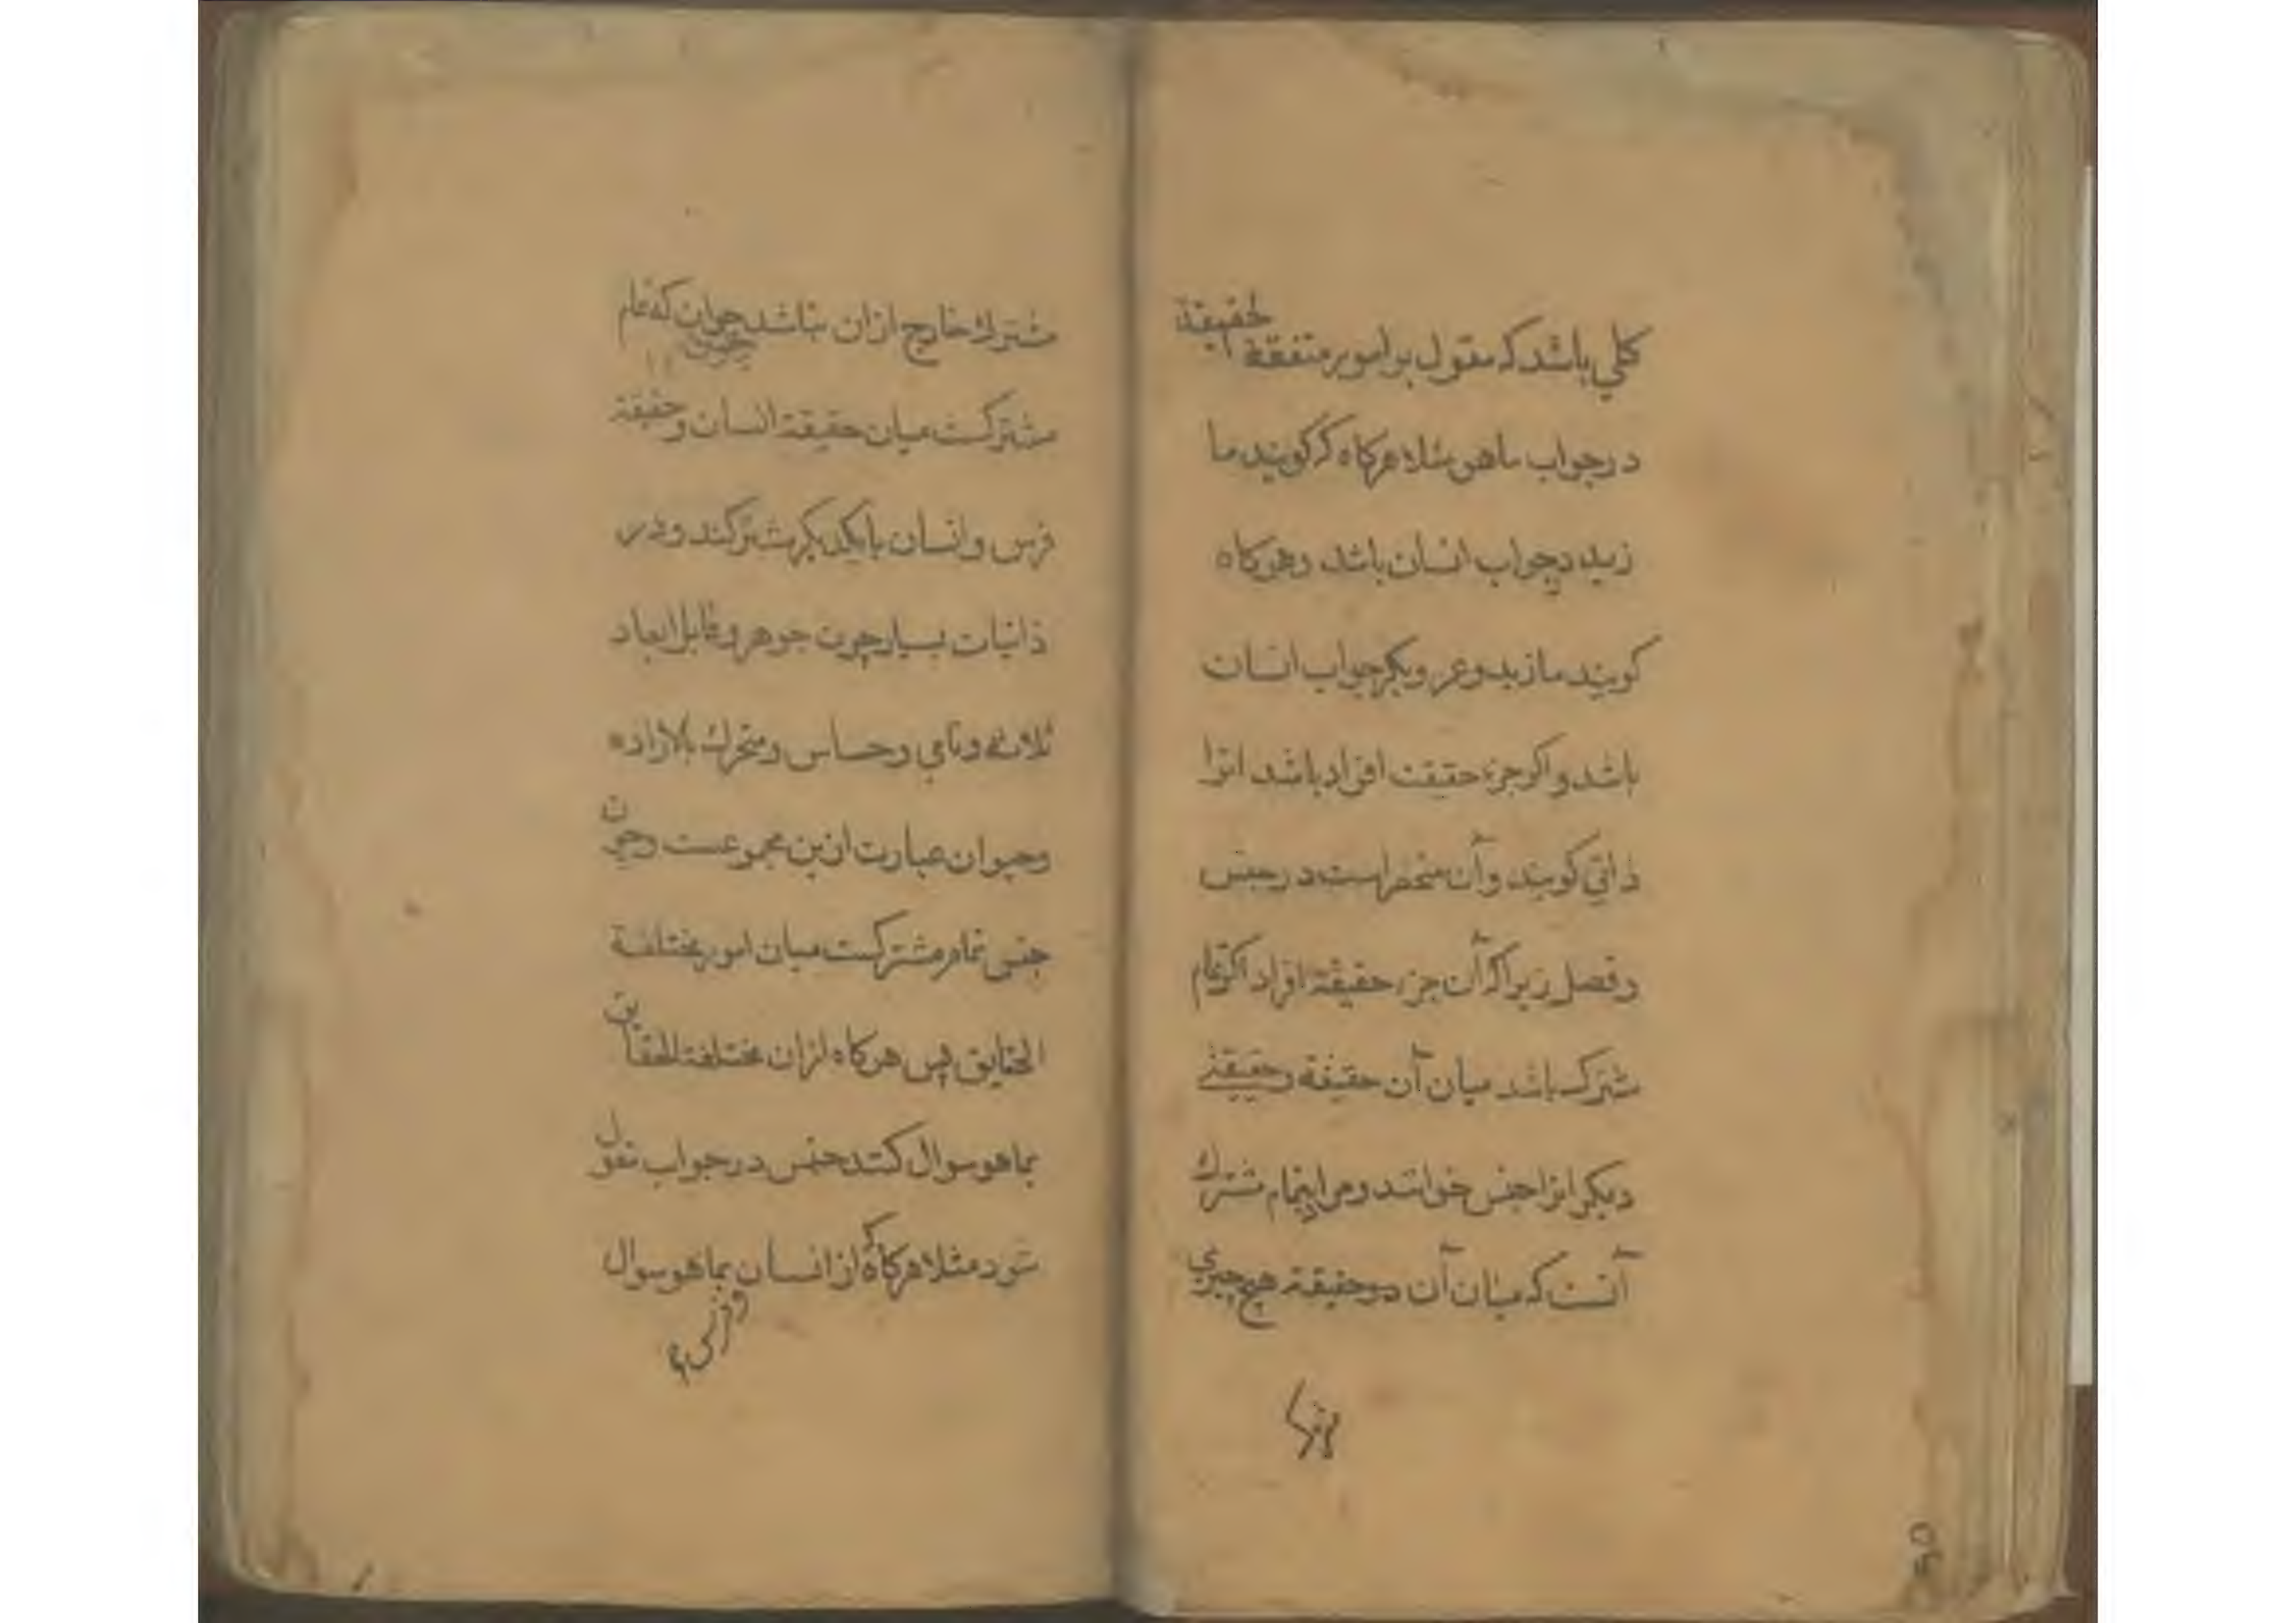 كلي باشد كه مقول بر امور متفقة لحقيقة
در جواب ماهو مثلا هركاه كه كويند ما
زيد درجواب انسان باشد وهركاه
كويند ما زيد وعمر وبكر جواب انسان
باشد واكر جزء حقيقت افراد باشد انرا
ذاتي كويند وآن منحصر است در جنس
وفصل زيرا كه آن جزء حقيقة افراد اكر تمام
مشترك باشد ميان آن حقيقة وحقيقتي
ديكر انرا جنس خوانند ومراد بتمام مشترك
آنست كه ميان آن دو حقيقة هيچ چيزي
مشترك خارج ازان نباشد چون كه تمام
حيوان
مشتركست ميان حقيقة انسان وحقيقة
فرس وانسان بايكديكر مشتركند ودر
ذاتيات بسيار چون جوهر وقابل ابعاد
ثلاثه ونامي وحساس ومتحرك بالاراده
وحيوان عبارت ازين مجموعست وچون
جنس تمام مشتركست ميان امور مختلفة
الحقايق پس هركاه ازان مختلفة الحقايق
بماهو سوال كنند جنس در جواب مقول
شود مثلا هركاه كه از انسان بماهو سوال
وفرس